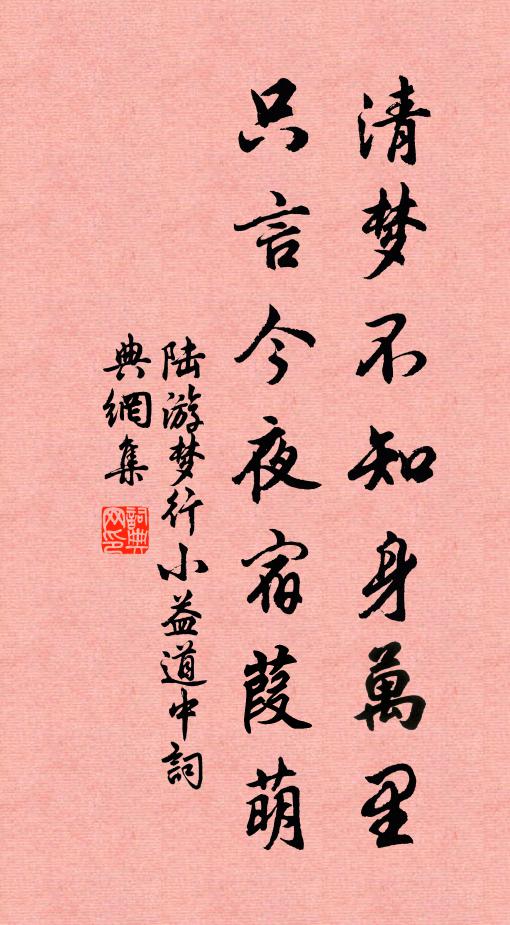 清梦不知身萬里
只言今夜宿葭萌
陆游梦行小益道中詞
典網集
詞典网印